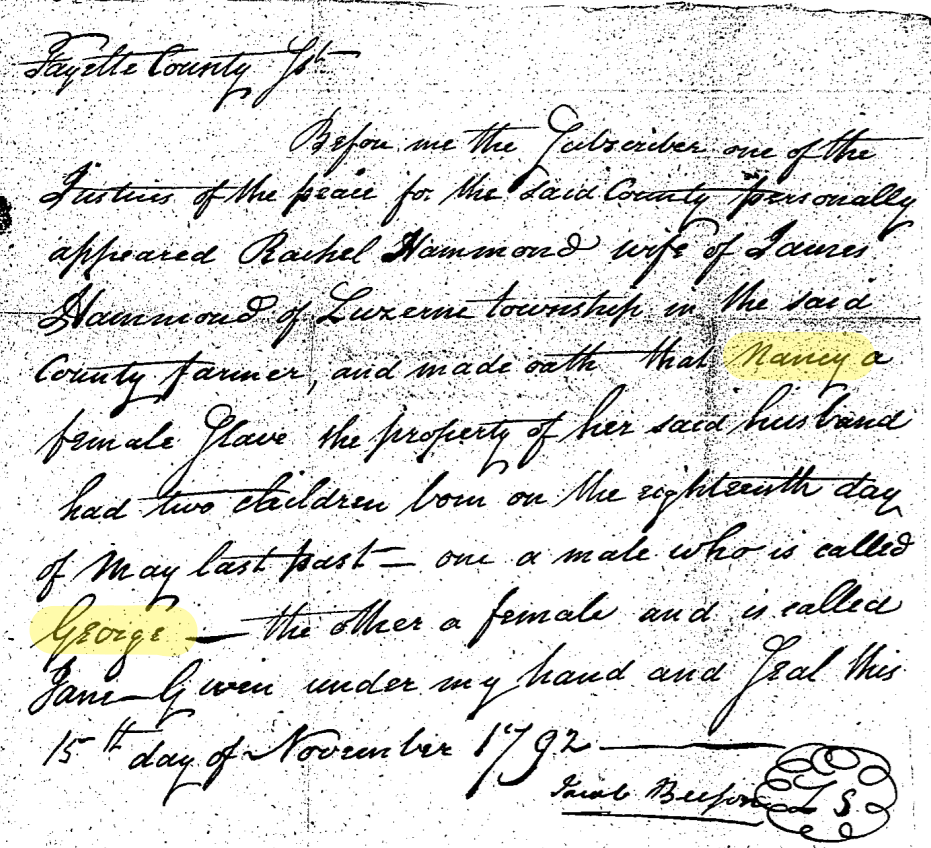 Fayette County Sst
Before me the Subscriber one of the
Justices of the peace for the said County personally
appeared Rachel Hammond wife of James
Hammond of Luzerne township in the said
County farmer, and made oath that Nancy a
female Slave the property of her said husband
had two children born on the eighteenth day
of May last past — one a male who is called
George — the other a female and is called
Jane — Given under my hand and Seal this
15th day of November 1792
Jacob Beeson L S.